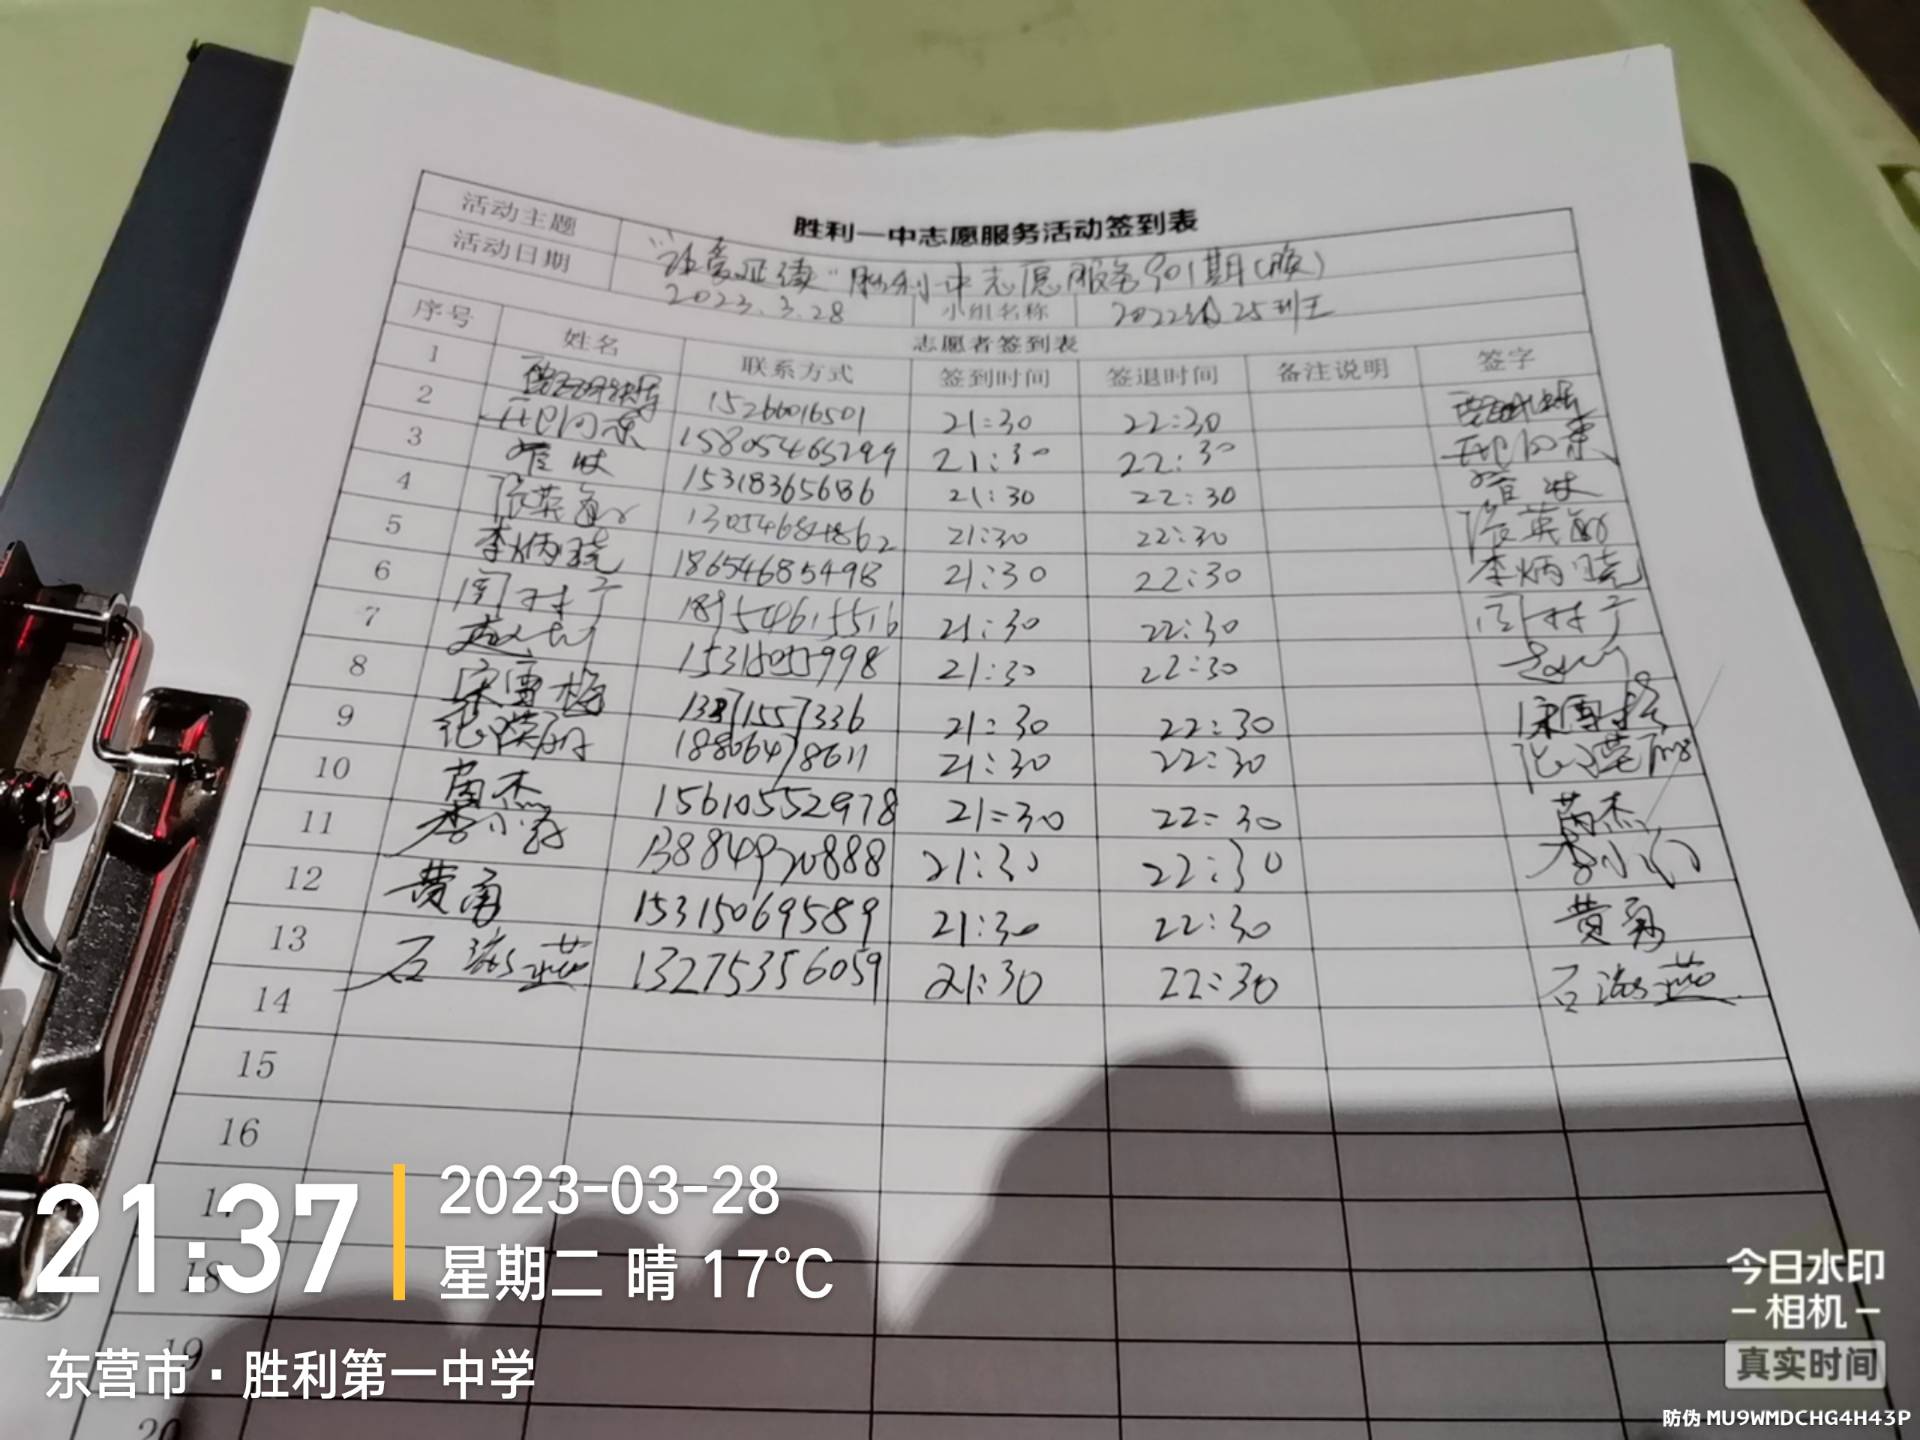 胜利一中志愿服务活动签到表
活动主题 "让爱延续"胜利一中志愿服务901期(晚)
活动日期 2023.3.28 小组名称 2022级25班
志愿者签到表
序号 姓名 联系方式 签到时间 签退时间 备注说明 签字
1 15266016501 21:30 22:30
2 15805465299 21:30 22:30
3 15318365686 21:30 22:30
4 张英 13054684862 21:30 22:30 张英
5 李炳晓 18654685498 21:30 22:30 李炳晓
6 18954615516 21:30 22:30
7 15318055998 21:30 22:30
8 宋雪梅 21:30 22:30 宋雪梅
9 18806478611 21:30 22:30
10 苗杰 15610552978 21:30 22:30 苗杰
11 李小 13884920888 21:30 22:30 李小
12 黄勇 15315069589 21:30 22:30 黄勇
13 石海燕 13275356059 21:30 22:30 石海燕
14
15
16
17
18
19
20
21:37
2023-03-28
星期二 晴 17°C
东营市·胜利第一中学
今日水印
-相机-
真实时间
防伪 MU9WMDCHG4H43P